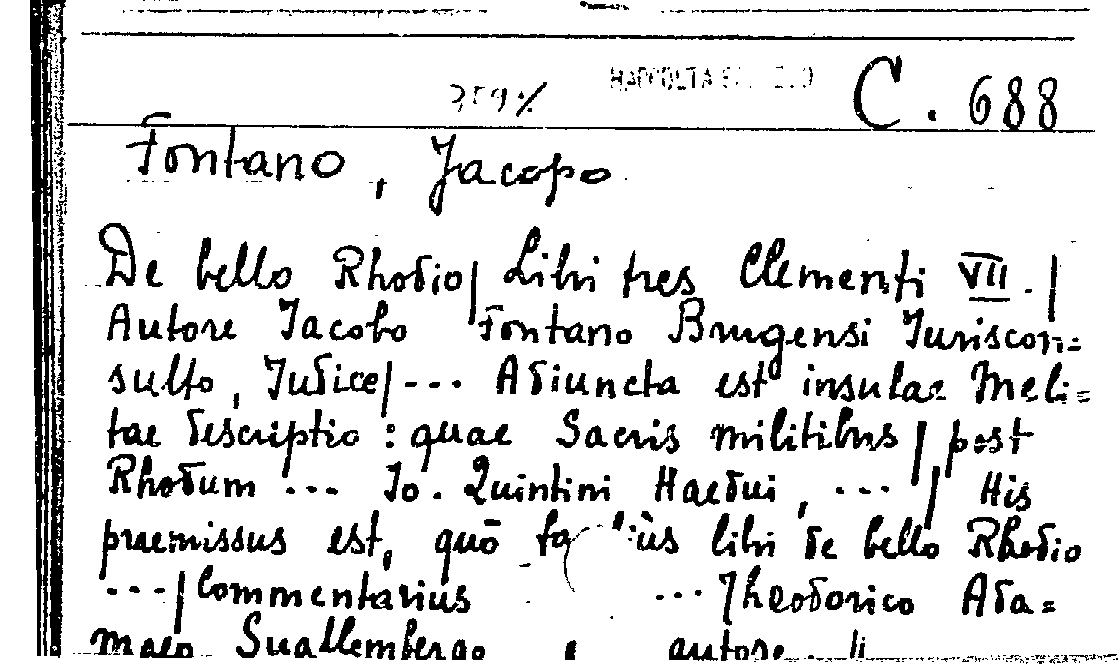 C. 688
Fontano, Jacopo
De bello Rhodio| Libri tres Clementi VII. |
Autore Iacobo Fontano Brugensi Iuriscon=
sulto, Iudice| --- Adiuncta est insulae Meli=
tae descriptio : quae Sacris militibus | post
Rhodum --- Io. Quintini Haedui, --- | His
praemissus est, quō libri de bello Rhodio
---| Commentarius --- Theodorico Ada=
maeo Suallembergo autore. li